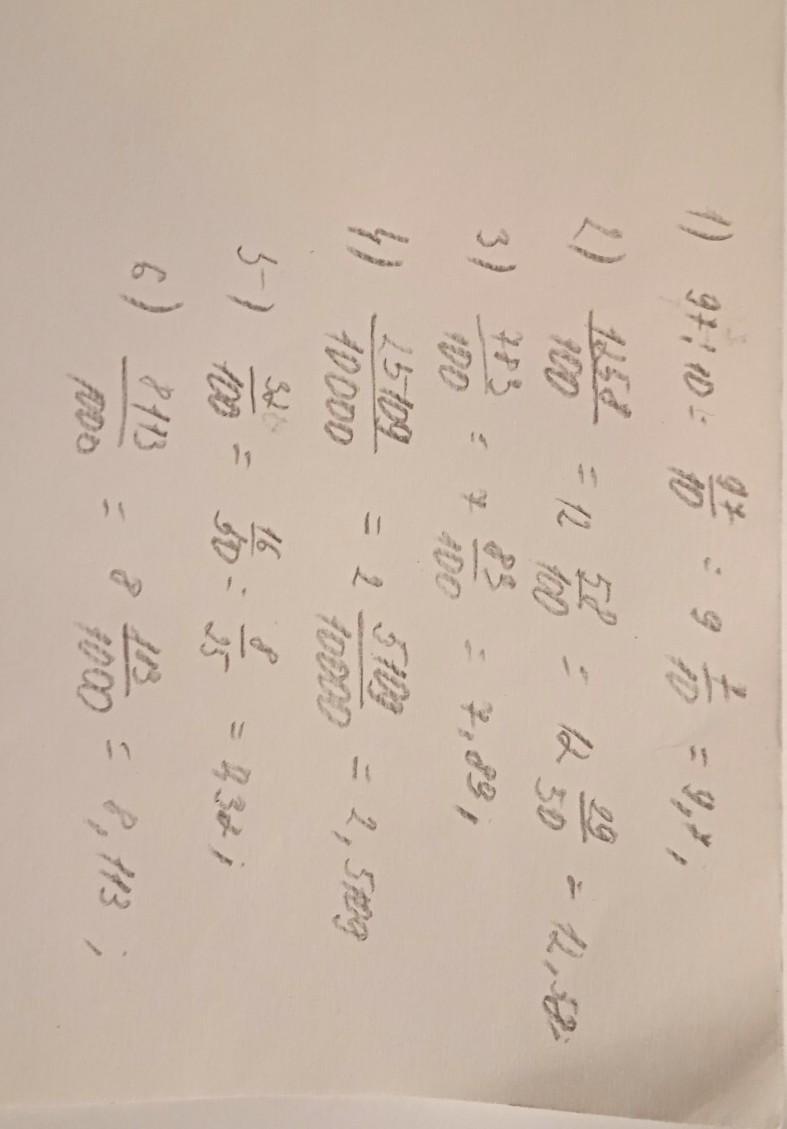 1) 97:10 = 97/10 = 9 7/10 = 9,7;
2) 1258/100 = 12 58/100 = 12 29/50 = 12,58;
3) 783/100 = 7 83/100 = 7,83;
4) 25109/10000 = 2 5109/10000 = 2,5109
5) 32/100 = 16/50 = 8/25 = 0,32;
6) 8113/1000 = 8 113/1000 = 8,113;